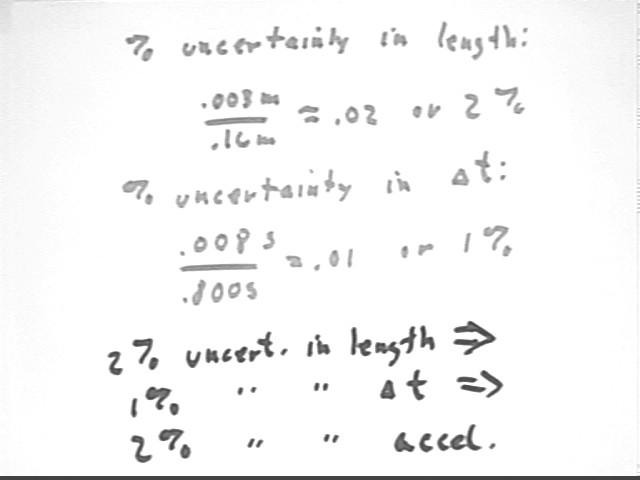 % uncertainty in length:
.003 m
.16 m
≈ .02 or 2 %
% uncertainty in Δt:
.008 s
.800 s
= .01 or 1 %
2 % uncert. in length ⇒
1 % " " Δt ⇒
2 % " " accel.